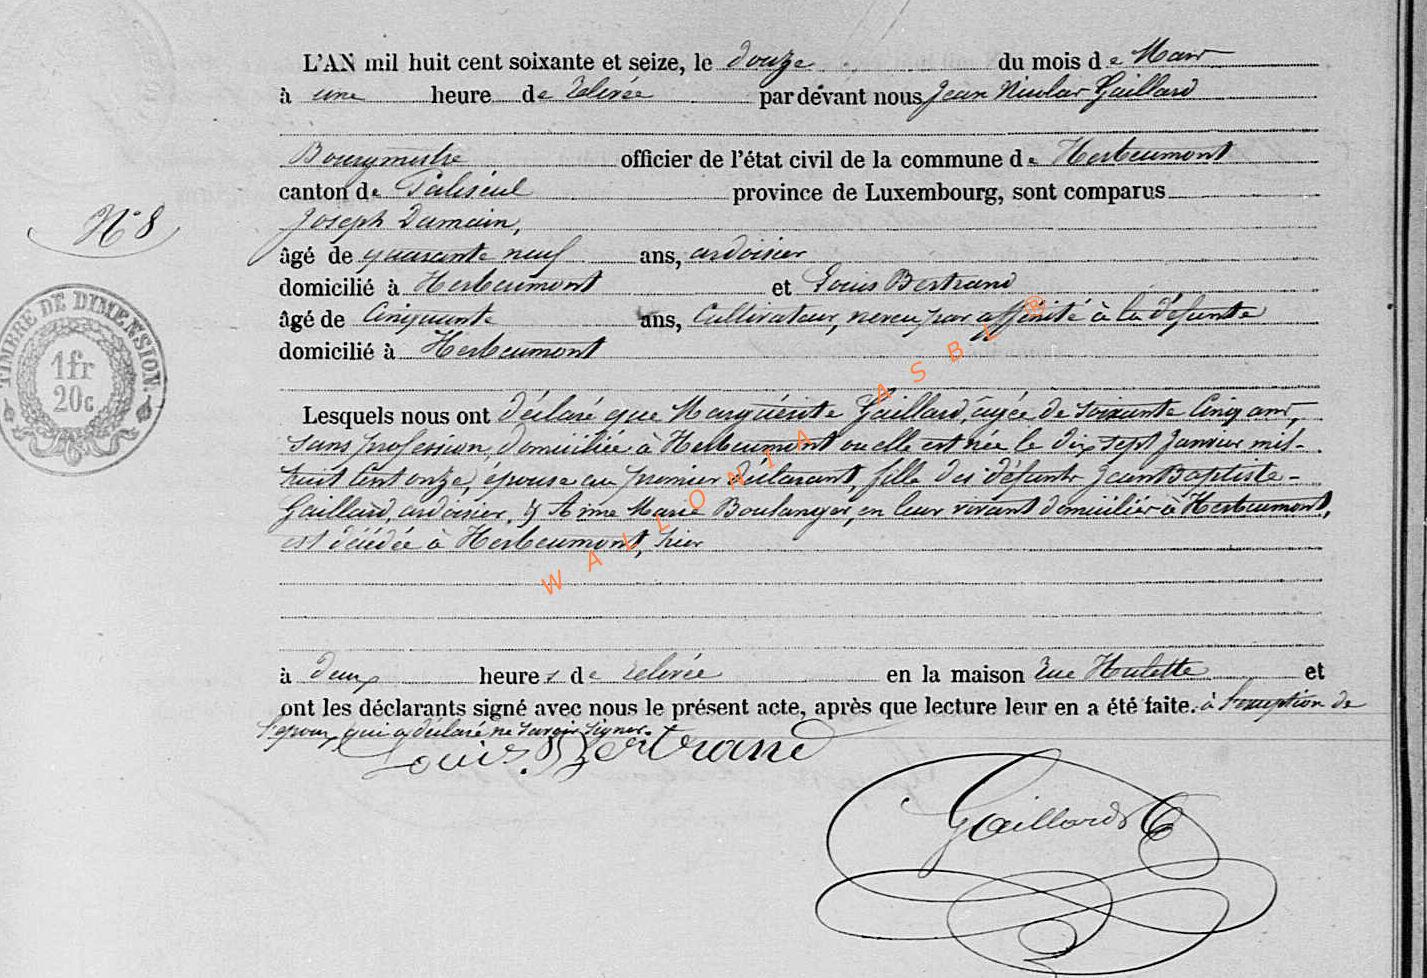 L'AN mil huit cent soixante et seize, le douze du mois de Mars
à une heure de relevée par dévant nous Jean Nicolas Gaillard
Bourgmestre officier de l'état civil de la commune de Herbeumont
canton de Paliseul province de Luxembourg, sont comparus
Joseph Damain,
N° 8
âgé de quarante neuf ans, ardoisier
domicilié à Herbeumont et Louis Bertrand
âgé de Cinquante ans, Cultivateur, neveu par affinité à la défunte
domicilié à Herbeumont
TIMBRE DE DIMENSION.
1fr
20c
Lesquels nous ont déclaré que Marguérite Gaillard, agée de soixante Cinq ans,
sans profession, domiciliée à Herbeumont ou elle est née le dix sept Janvier mil-
huit Cent onze, épouse au premier déclarant, fille des défunts Jean Baptiste-
Gaillard, ardoisier, & Anne Marie Boulanger, en leur vivant domiciliés à Herbeumont,
est décédée à Herbeumont, hier
WALLONIA ASBL ®
à deux heures de relevée en la maison rue Hulette et
ont les déclarants signé avec nous le présent acte, après que lecture leur en a été faite. à l'exception de
l'époux qui a déclaré ne savoir signer.
Louis. Bertrand
Gaillard